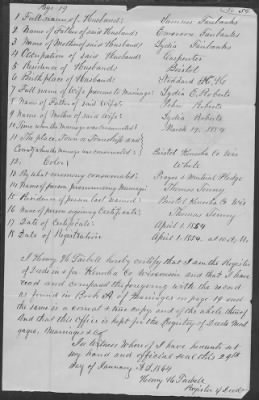 Page 19
1 Full name of Husband:
2 Name of Father of said Husband:
3 Name of Mother of said Husband: Lydia Fairbanks
4 Occupation of said Husband: Carpenter
5 Residence of Husband: Bristol
6 Birth place of Husband:
7 Full name of Wife previous to Marriage: Lydia E. Roberts
8 Name of Father of said Wife: John Roberts
9 Name of Mother of said Wife: Lydia Roberts
10 Time when the Marriage was consummated: March 1854
11 The place, Town or Township and
County where the Marriage was consummated: Bristol Kenosha Co Wis
12. Color White
13 By what ceremony consummated: Prayer & Mutual Pledge
14 Name of person pronouncing Marriage: Thomas
15 Residence of Person last named: Bristol Kenosha Co Wis
16 Name of person signing Certificate: Thomas
17 Date of Certificate: April 1. 1854
18 Date of Registration April 1. 1854.
I Henry W Tarbell hereby certify that I am the Register
of Deeds in & for Kenosha Co Wisconsin and that I have
read and compared the foregoing with the record
as found in Book A of Marriages on page 19 and
the same is a correct & true copy, and of the whole thereof
And that this Office is kept for the Registry of Deeds Mort
gages, Marriages &c
In Witness Whereof I have hereunto set
my hand and official seal this 29th
day of January A.D. 1864
Henry W Tarbell
Register of Deeds